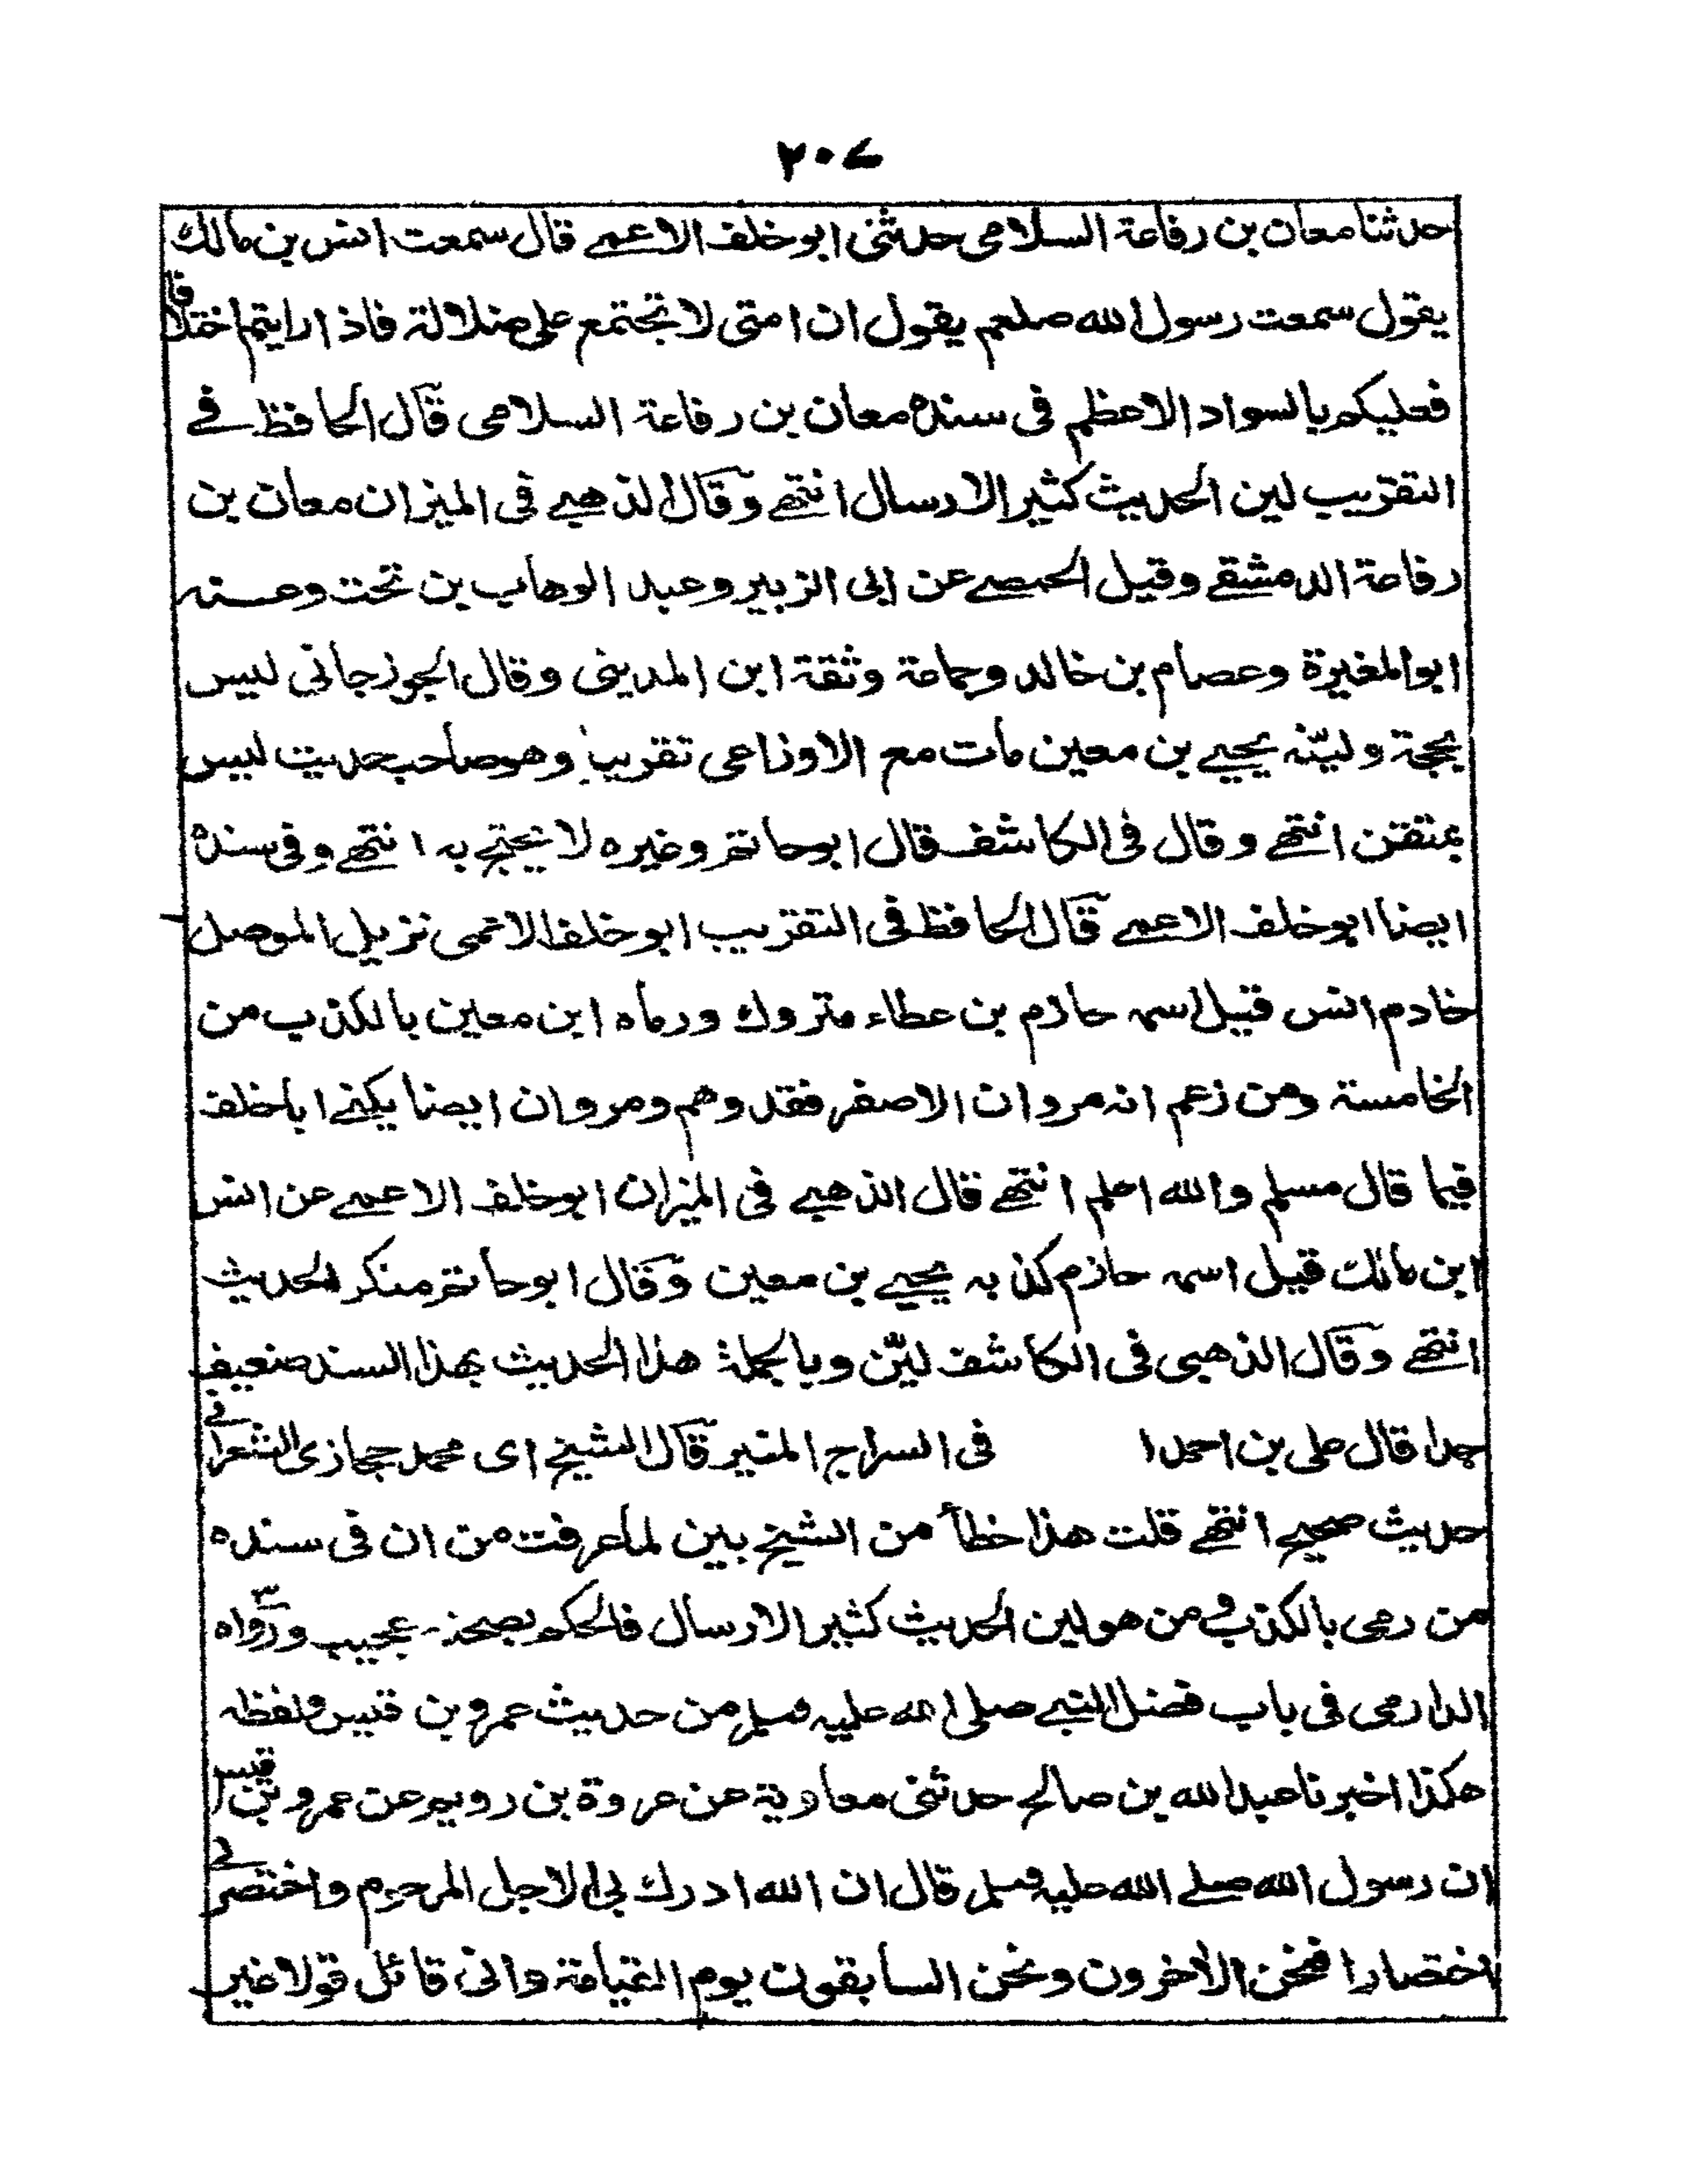 ٢٠٧
حدثنا معان بن رفاعة السلامى حدثنى ابوخلف الاعمے قال سمعت انس بن مالك
يقول سمعت رسول الله صلعم يقول ان امتى لا تجتمع على ضلالة فاذا رايتم اختلافا
فعليكم بالسواد الاعظم فى سنده معان بن رفاعة السلامى قال الحافظ فے
التقريب لين الحديث كثير الارسال انتهے وقال الذهبے فى الميزان معان بن
رفاعة الدمشقے وقيل الحمصے عن ابى الزبير وعبد الوهاب بن تخت وعنه
ابو المغيرة وعصام بن خالد وجماعة وثقة ابن المدينى وقال الجوزجانى ليس
بحجة وليّنه يحيے بن معين مات مع الاوزاعى تقريبا وهو صاحب حديث ليس
بمتقن انتهے وقال فى الكاشف قال ابو حاتم وغيره لا يحتج به انتهے وفى سنده
ايضا ابوخلف الاعمے قال الحافظ فى التقريب ابو خلف الاعمى نزيل الموصل
خادم انس قيل اسمه حازم بن عطاء متروك ورماه ابن معين بالكذب من
الخامسة ومن زعم انه مروان الاصفر فقد وهم ومروان ايضا يكنے ابا خلف
فيما قال مسلم والله اعلم انتهے قال الذهبے فى الميزان ابوخلف الاعمے عن انس
ابن مالك قيل اسمه حازم كذبه يحيے بن معين وقال ابو حاتم منكر الحديث
انتهے وقال الذهبى فى الكاشف ليّن وبالجملة هذا الحديث بهذا السند ضعيف
جدا قال على بن احمد ا فى السراج المنير قال الشيخ اى محمد حجازى الشعرانے
حديث صحيح انتهے قلت هذا خطأ من الشيخ بين لما عرفت من ان فى سنده
من رمى بالكذب و من هو لين الحديث كثير الارسال فالحكم بصحته عجيب و رواه
الدارمى فى باب فضل النبے صلى الله عليه وسلم من حديث عمرو بن قيس ولفظه
هكذا اخبرنا عبد الله بن صالح حدثنى معاوية عن عروة بن رويم عن عمرو بن قيس
ان رسول الله صلے الله عليه وسلم قال ان الله ادرك بى الاجل المرحوم واختصر لے
اختصارا فنحن الآخرون ونحن السابقون يوم القيامة وانى قائل قولا غير